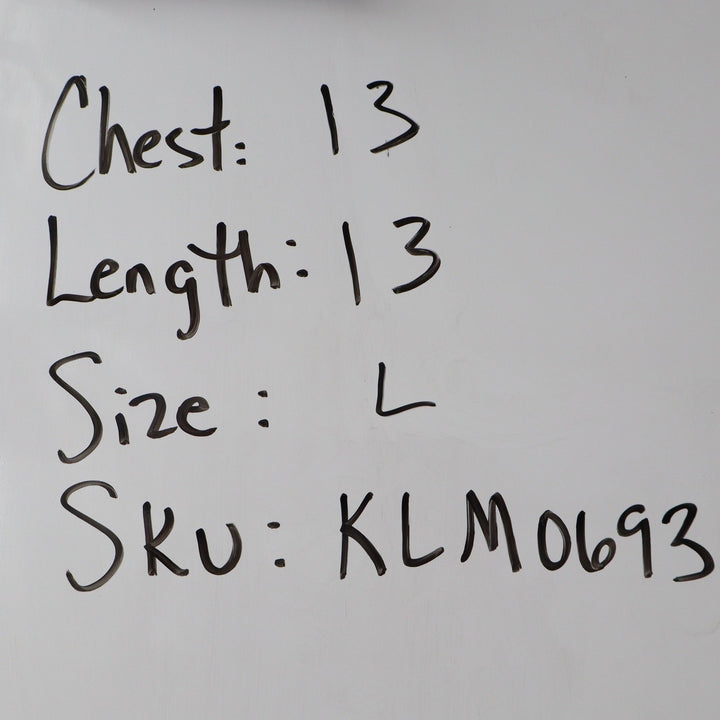 Chest: 13
Length: 13
Size: L
SKU: KLM0693